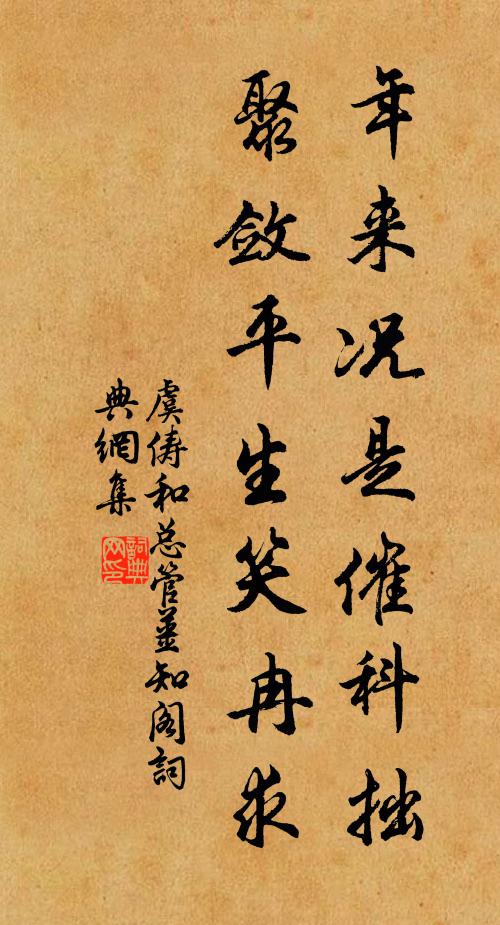 年来况是催科拙
聚敛平生笑冉求
虞俦和总管薑知阁詞
典網集
詞典
网印